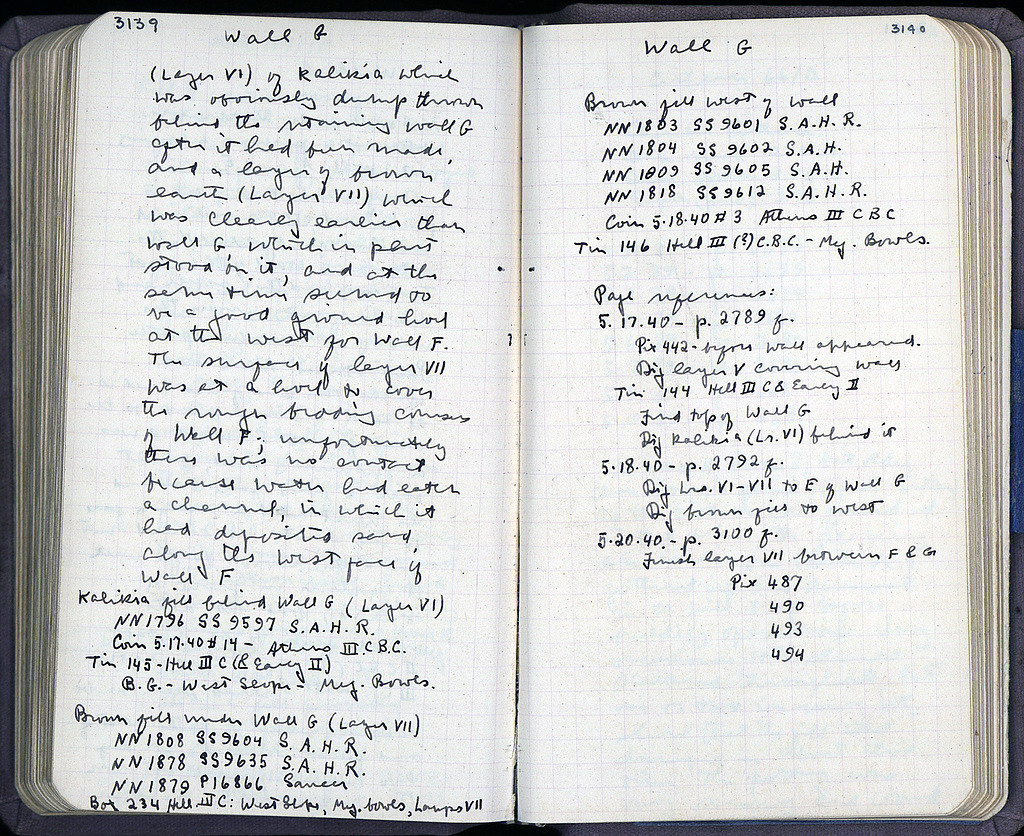 3139
Wall G
(Layer VI) of Kalikia which
was obviously dump thrown
behind the retaining wall G
after it had been made,
and a layer of brown
earth (Layer VII) which
was clearly earlier than
Wall G which in part
stood on it, and at the
same time seemed to
be a good ground level
at the west for Wall F.
The surface of layer VII
was at a level to cover
the rough bedding courses
of Wall F; unfortunately
there was no contact
because water had eaten
a channel, in which it
had deposited sand,
along the west face of
Wall F
Kalikia fill behind Wall G (Layer VI)
NN1796 SS 9597 S.A.H.R.
Coin 5.17.40 # 14 - Athens III C B.C.
Tin 145 - Hell III C (& Early II)
B.G. - West Slope - Meg. Bowls.
Brown fill under Wall G (Layer VII)
NN1808 SS9604 S.A.H.R.
NN1878 SS9635 S.A.H.R.
NN1879 P16866 Saucer
Box 234 Hell III C: West Slope, Meg. bowls, Lamps VII
3140
Wall G
Brown fill west of wall
NN1803 SS9601 S.A.H.R.
NN1804 SS9602 S.A.H.
NN1809 SS9605 S.A.H.
NN1818 SS9612 S.A.H.R.
Coin 5.18.40 # 3 Athens III C BC
Tin 146 Hell III (?) C.B.C. - Meg. Bowls.
Page references:
5.17.40 - p. 2789 f.
Pix 442 - before wall appeared.
Dig layer V covering wall
Tin 144 Hell III C & Early II
Find top of Wall G
Dig Kalikia (Lr. VI) behind it
5.18.40 - p. 2792 f.
Dig Lrs. VI-VII to E of Wall G
Dig brown fill to west
5.20.40 - p. 3100 f.
Finish layer VII between F & G
Pix 487
490
493
494